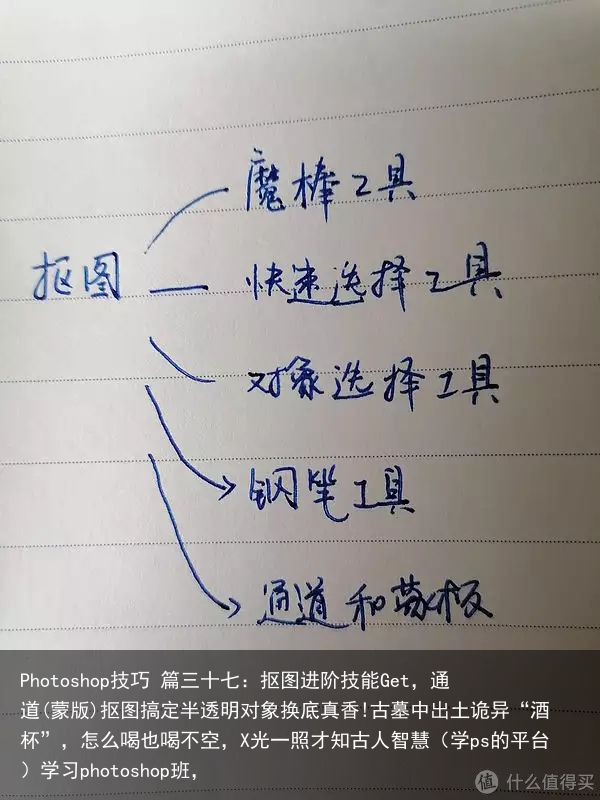 魔棒工具
抠图
快速选择工具
对象选择工具
钢笔工具
通道和蒙板
Photoshop技巧 篇三十七：抠图进阶技能Get，通
道(蒙版)抠图搞定半透明对象换底真香!古墓中出土诡异“酒
杯”，怎么喝也喝不空，X光一照才知古人智慧（学ps的平台
）学习photoshop班，
值 什么值得买